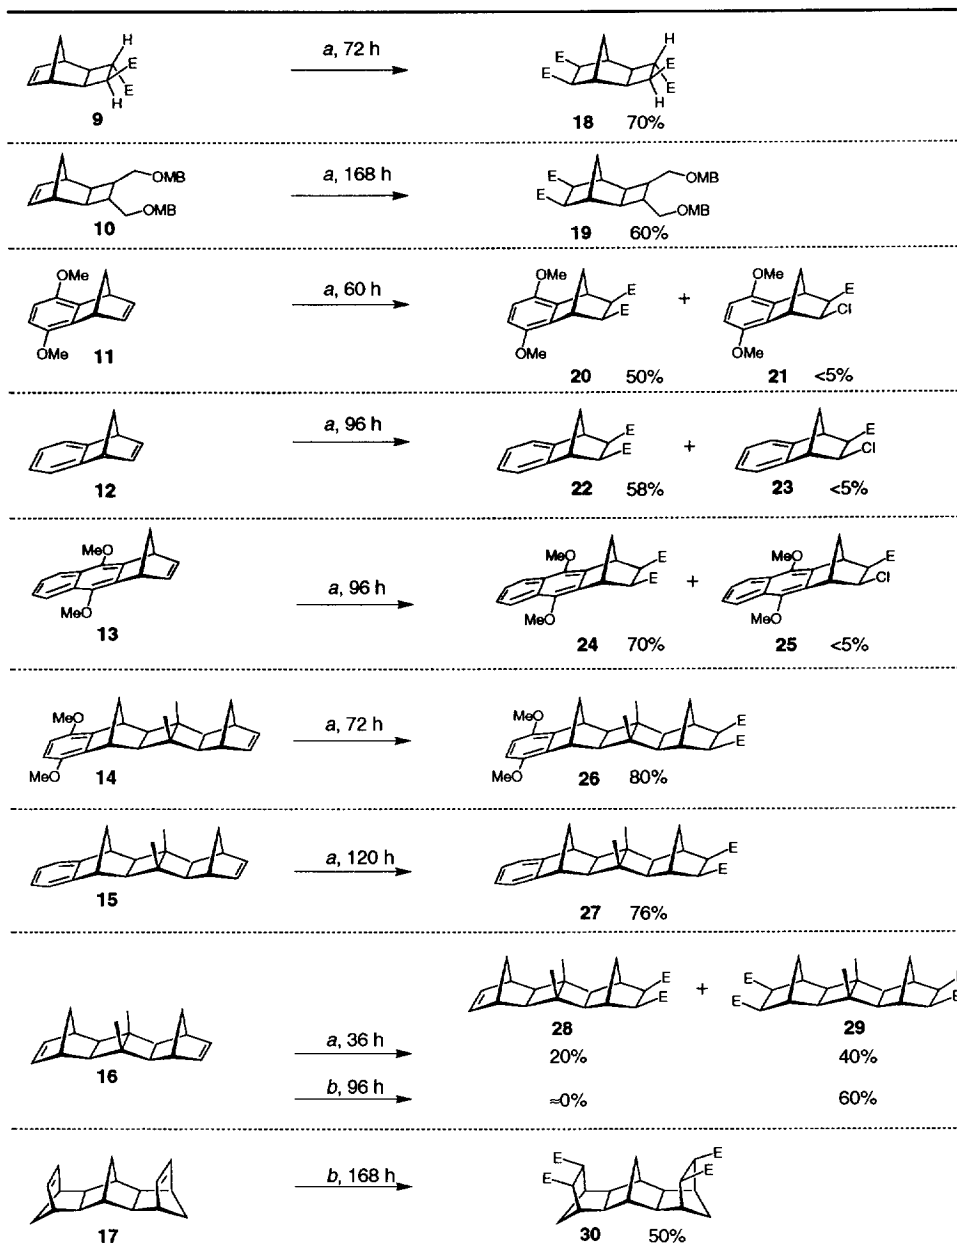 H
E
E
H
9
a, 72 h
E
E
H
E
E
H
18 70%
OMB
OMB
10
a, 168 h
E
E
OMB
OMB
19 60%
OMe
OMe
11
a, 60 h
OMe
E
E
OMe
20 50%
+
OMe
E
Cl
OMe
21 <5%
12
a, 96 h
E
E
22 58%
+
E
Cl
23 <5%
MeO
MeO
13
a, 96 h
MeO
E
E
MeO
24 70%
+
MeO
E
Cl
MeO
25 <5%
MeO
MeO
14
a, 72 h
MeO
E
E
MeO
26 80%
15
a, 120 h
E
E
27 76%
16
a, 36 h
b, 96 h
E
E
28
20%
≈0%
+
E
E
E
E
29
40%
60%
17
b, 168 h
E
E
E
E
30 50%